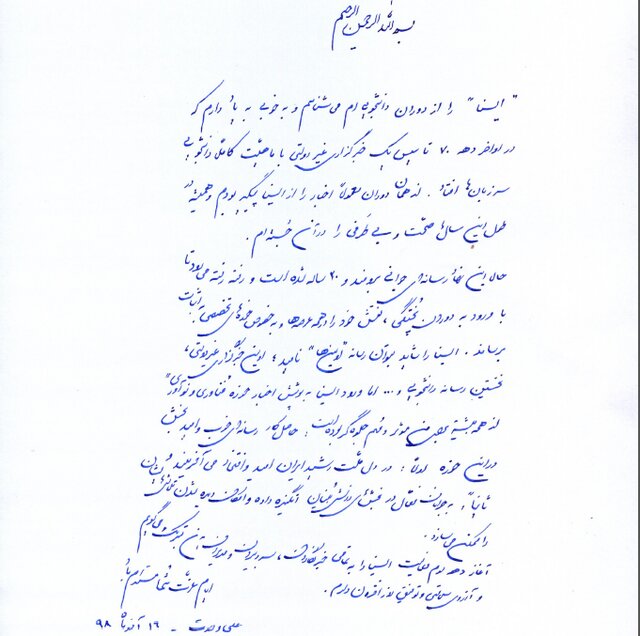 بسم الله الرحمن الرحیم
"ایسنا" را از دوران دانشجویی ام می شناسم و به خوبی به یاد دارم که
در اواخر دهه ۷۰ تاسیس یک خبرگزاری غیر دولتی با ماهیت کاملاً دانشجویی
سر زبان‌ها افتاد. از همان دوران معمولاً اخبار را از ایسنا پیگیر بودم و همیشه در
طول این سال‌ها صحت و بی طرفی را در آن جسته ام.
حالا این نهاد رسانه‌ای جوانی برومند و ۲۰ ساله شده است و رفته رفته می رود تا
با ورود به دوران پختگی، نقش خود را در همه عرصه‌ها و به خصوص حوزه‌های تخصصی به اثبات
برساند. ایسنا را شاید بتوان رسانه "اولین‌ها" نامید؛ اولین خبرگزاری غیردولتی،
نخستین رسانه دانشجویی و ... اما ورود ایسنا به پوشش اخبار حوزه فناوری و نوآوری
از همه بیشتر برای من موثر و مهم جلوه گر بوده است. حاصل کار رسانه‌ای خوب و امید بخش
در این حوزه اولاً: در دل ملت رشید ایران امید واقعی را می آفریند و
ثانیاً: به جوانان فعال در بخش‌های دانش بنیان انگیزه داده و امکان دیده شدن تلاش‌های ایشان
را ممکن می سازد.
آغاز دهه سوم فعالیت ایسنا را به تمامی خبرنگاران، سردبیران و مدیران آن تبریک می گویم
و آرزوی سلامتی و توفیق روز افزون دارم.
ایام عزت شما مستدام باد
علی وحدت - ۱۶ آذرماه ۹۸